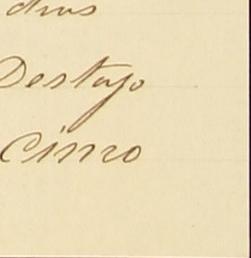 dias
Destajo
Cinco